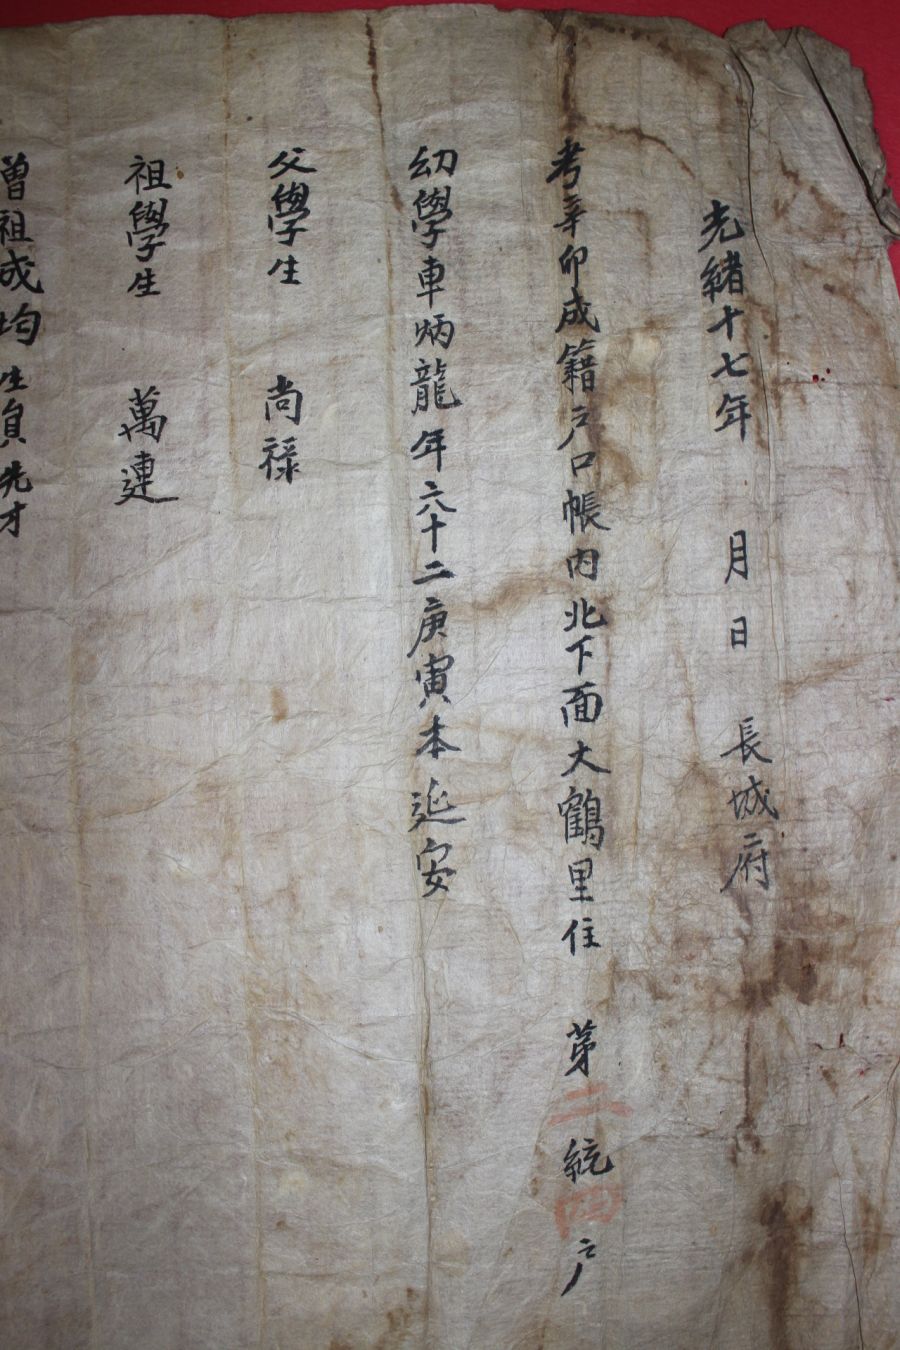 光緖十七年 月 日 長城府
考辛卯成籍戶口帳內北下面大鶴里住 苐二統四戶
幼學車炳龍年六十二庚寅本延安
父學生 尙祿
祖學生 萬連
曾祖成均生員先才